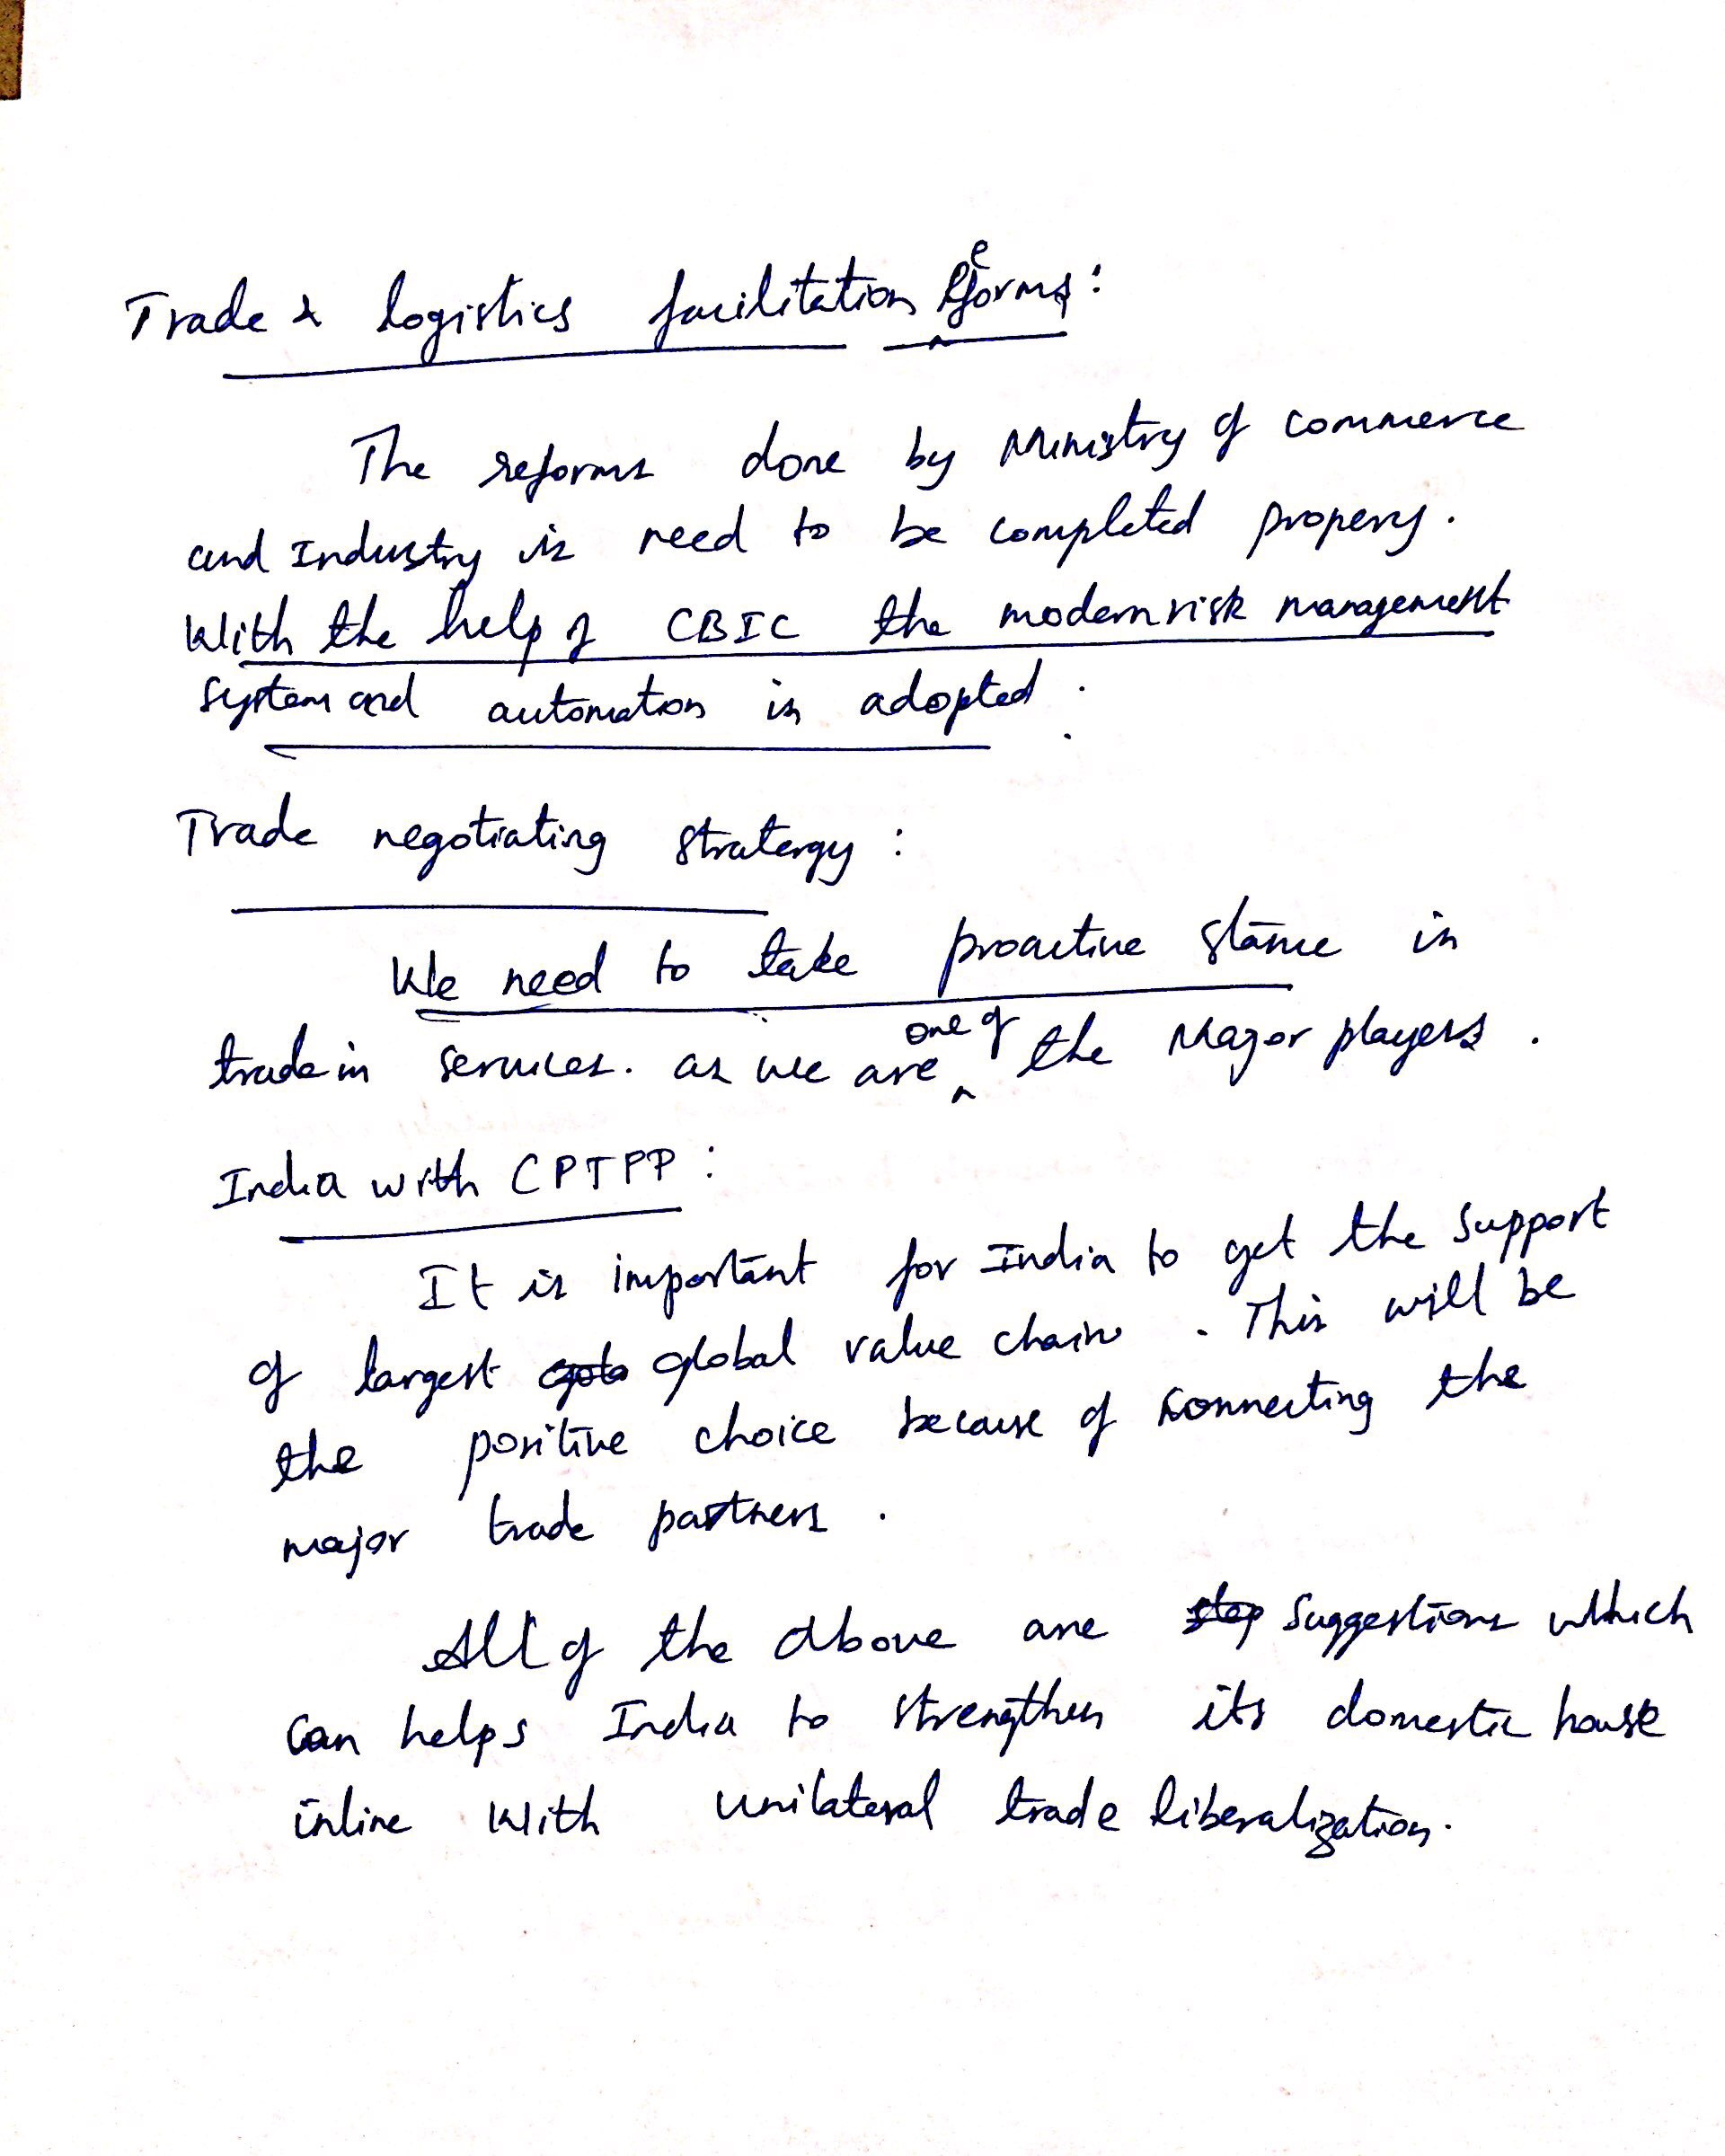 Trade & logistics facilitation Reforms:
The reforms done by Ministry of commerce
and Industry is need to be completed propery.
With the help of CBIC the modern risk management
system and automation is adopted.
Trade negotiating stratergy:
We need to take proactive stance in
trade in services. as we are one of the Major players.
India with CPTPP:
It is important for India to get the support
of largest global value chain. This will be
the positive choice because of connecting the
major trade partners.
All of the above are step suggestions which
can helps India to strengthen its domestic house
inline with unilateral trade liberalization.